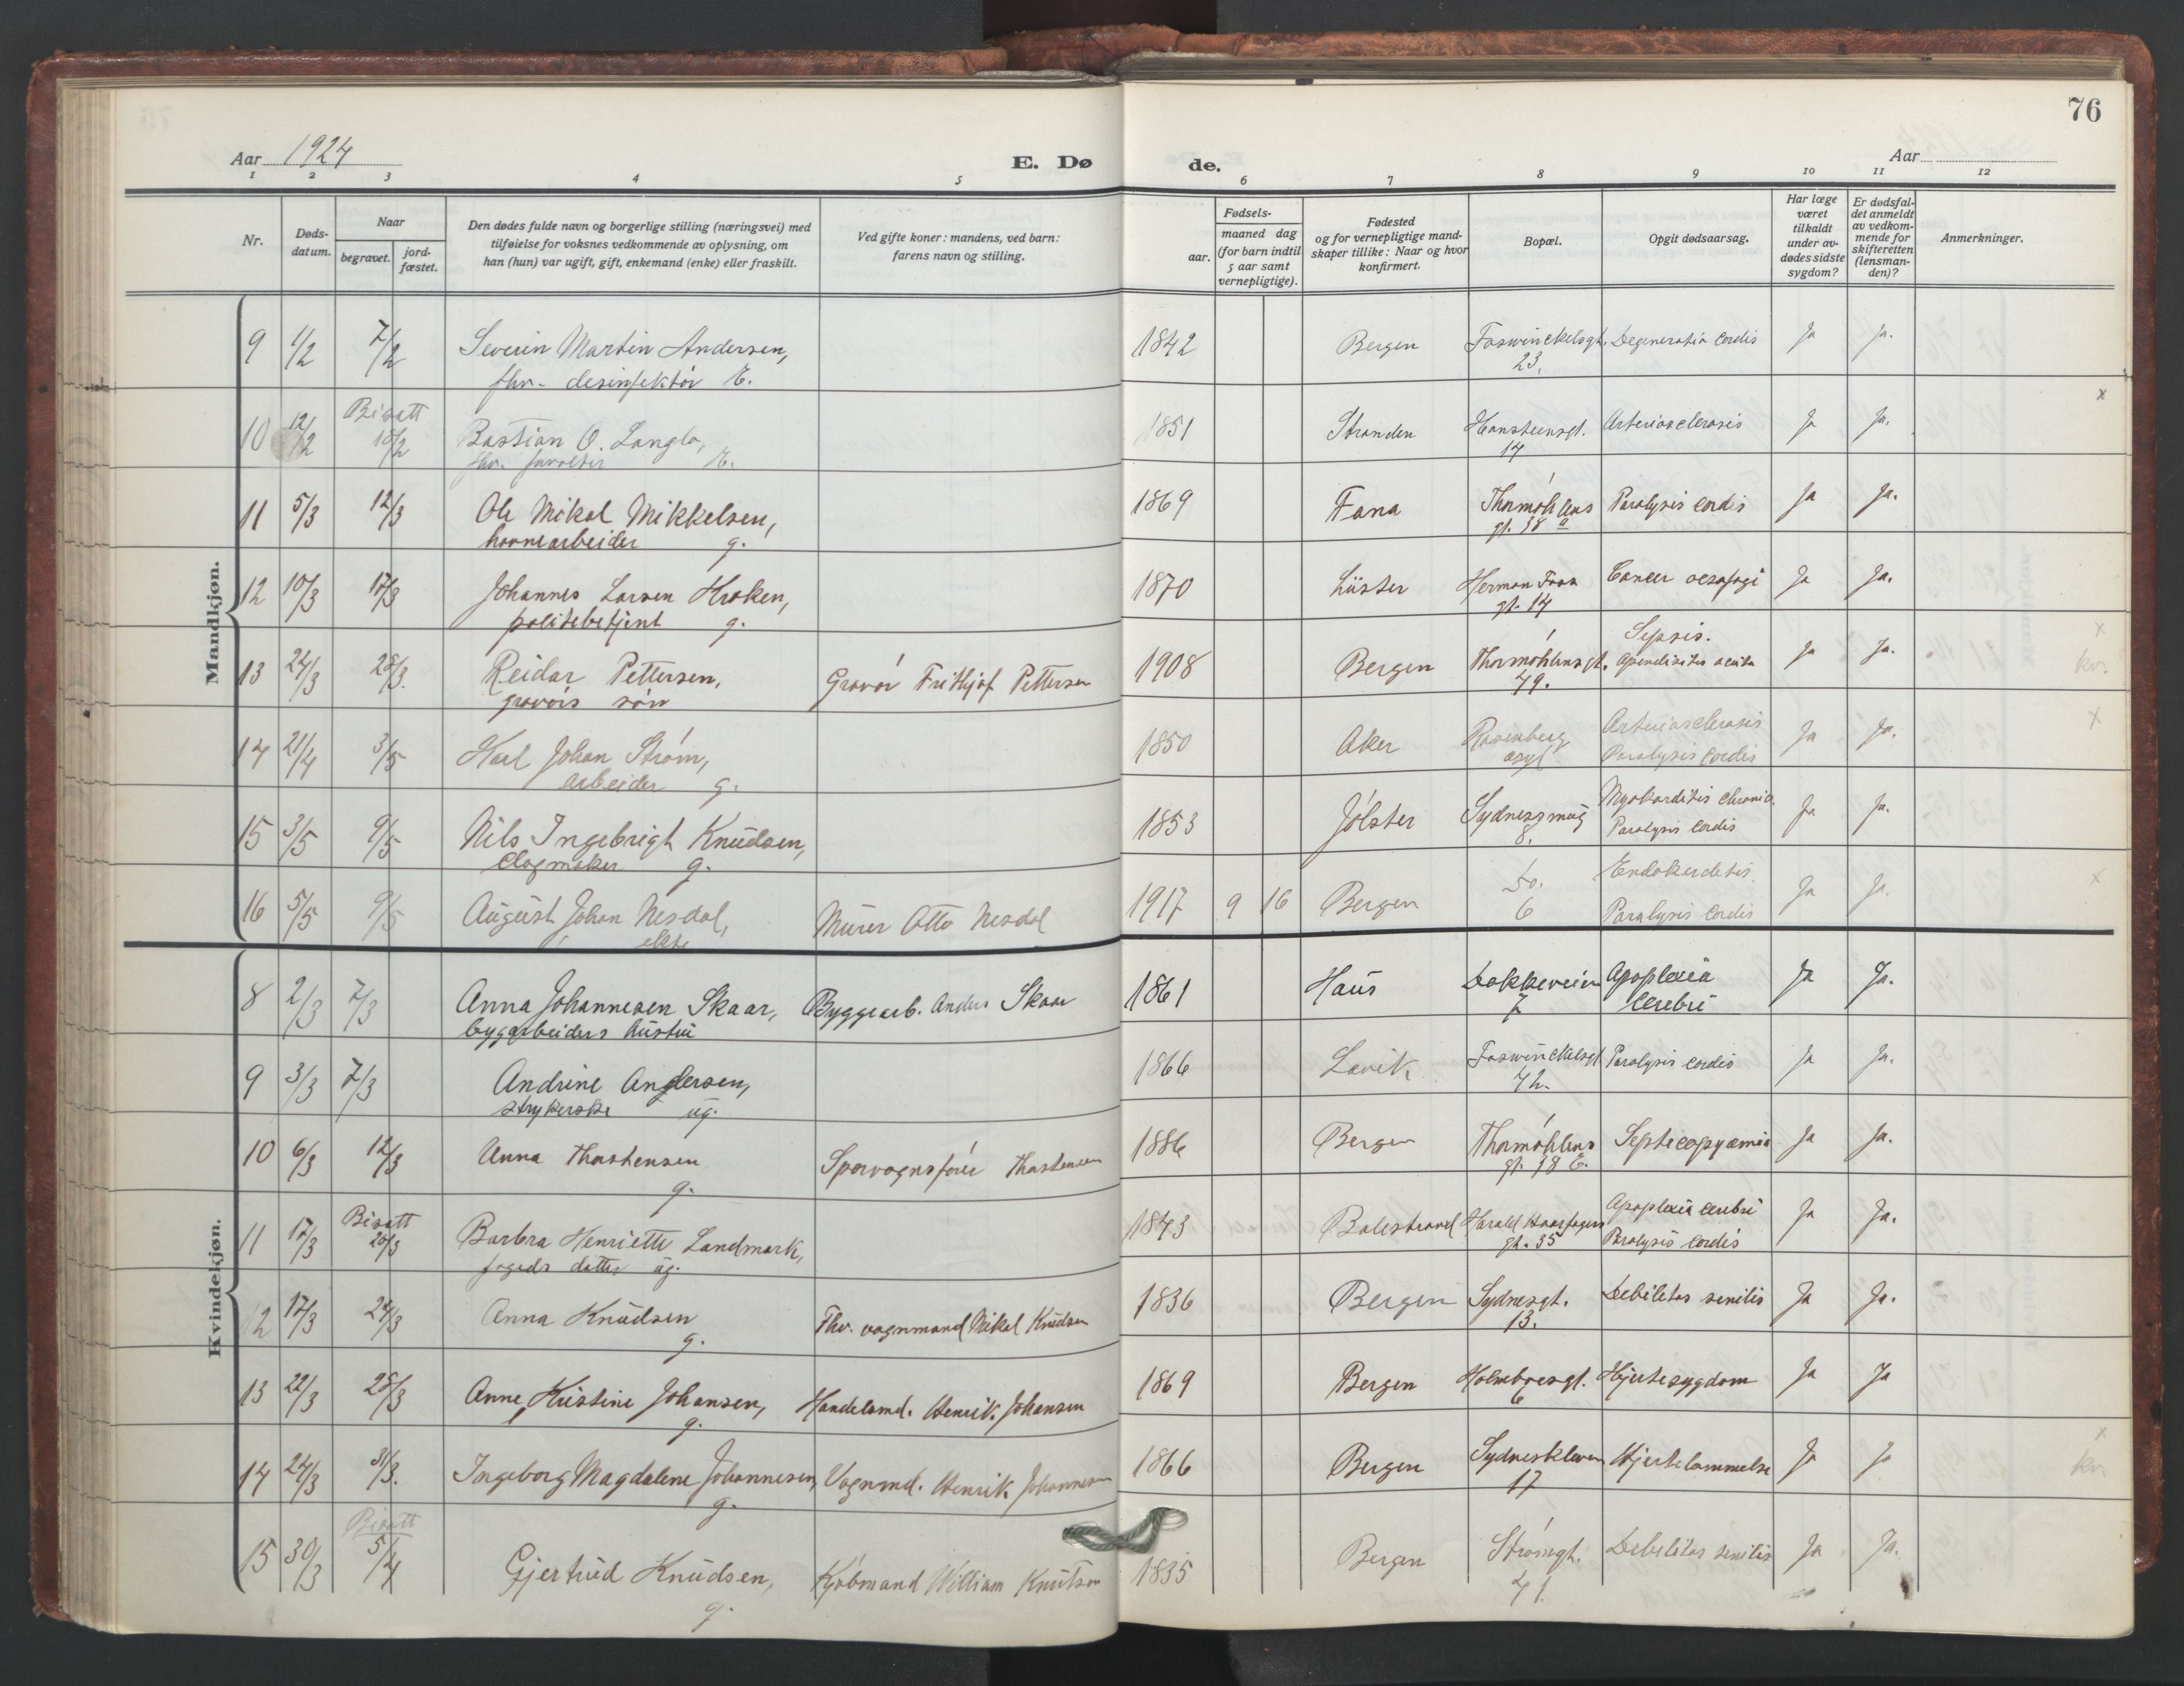 76
Aar 1924
E. Dø
de.
Aar
1 2 3 4 5 6 7 8 9 10 11 12
Nr.
Døds-
datum.
Naar
begravet.
jord-
fæstet.
Den dødes fulde navn og borgerlige stilling (næringsvei) med
tilføielse for voksnes vedkommende av oplysning, om
han (hun) var ugift, gift, enkemand (enke) eller fraskilt.
Ved gifte koner: mandens, ved barn:
farens navn og stilling.
Fødsels-
aar.
maaned dag
(for barn indtil
5 aar samt
vernepligtige).
Fødested
og for vernepligtige mand-
skaper tillike: Naar og hvor
konfirmert.
Bopæl.
Opgit dødsaarsag.
Har læge
været
tilkaldt
under av-
dødes sidste
sygdom?
Er dødsfal-
det anmeldt
av vedkom-
mende for
skifteretten
(lensman-
den)?
Anmerkninger.
Mandkjøn.
9 1/2 7/2 Severin Martin Andersen, 1842 Bergen Foswinckelsgt. Degeneratio cordis Ja Ja.
fhv. desinfektør E. 23.
Bisatt x
10 12/2 18/2 Bastian O. Langlo, 1851 Stranden Hansteensgt. Arteriosclerosis Ja Ja.
fhv. E. 14
11 5/3 12/3 Ole Mikal Mikkelsen, 1869 Fana Thormøhlens Paralysis cordis Ja Ja.
havnearbeider g. gt. 38 a
12 10/3 17/3 Johannes Larsen Kroken, 1870 Lüster Herman Foss Cancer oesofagi Ja Ja.
politibetjent g. gt. 14
Sepsis. x
13 24/3 28/3. Reidar Pettersen, Gravør Frithjof Pettersen 1908 Bergen Thormøhlensgt. Apendisitis acuta Ja Ja. kv.
gravørs søn 49.
Arteriosclerosis x
14 21/4 3/5 Karl Johan Strøm, 1850 Aker Rosenberg Ja Ja.
arbeider g. asyl Paralysis cordis
Myokarditis chronica.
15 3/5 9/5 Nils Ingebrigt Knudsen, 1853 Jølster Sydnessmug Ja Ja.
clogmaker g. 8. Paralysis cordis
Endokarditis x
16 5/5 9/5 August Johan Nesdal, Murer Otto Nesdal 1917 9 16 Bergen Do. Ja Ja.
ekte 6 Paralysis cordis
Kvindekjøn.
8 2/3 7/3 Anna Johannesen Skaar, Byggearb. Anders Skaar 1861 Haus Dokkeveien Apoplexia Ja Ja.
bygarbeiders hustru 7 cerebri
9 3/3 7/3 Andrine Andersen, 1866 Lavik Foswinckelsgt Paralysis cordis Ja Ja.
strykerske ug. 42.
10 6/3 12/3 Anna Thorstensen Sporvognsfører Thorstensen 1886 Bergen Thormøhlens Septicopyæmia Ja Ja.
g. gt. 38 E.
Bisatt Apoplexia cerebri
11 17/3 20/3 Barbra Henriette Landmark, 1843 Balestrand Harald Haarfagers Ja Ja.
fogeds datter ug. gt. 35 Paralysis cordis
12 17/3 24/3 Anna Knudsen Fhv. vognmand Mikal Knudsen 1836 Bergen Sydnesgt. Debilitas senilis Ja Ja.
g. 13.
13 22/3 28/3 Anne Kristine Johansen, Handelsmd. Henrik Johansen 1869 Bergen Holmboesgt. Hjertesygdom Ja Ja
g. 6
x
14 24/3 31/3. Ingeborg Magdalene Johannesen Vognmd. Henrik Johannesen 1866 Bergen Sydneskleven Hjertelammelse Ja Ja kv
g. 17
Bisatt
15 30/3 5/4 Gjertrud Knudsen, Kjøbmand William Knutson 1835 Bergen Strømgt. Debilitas senilis Ja Ja.
g. 41.